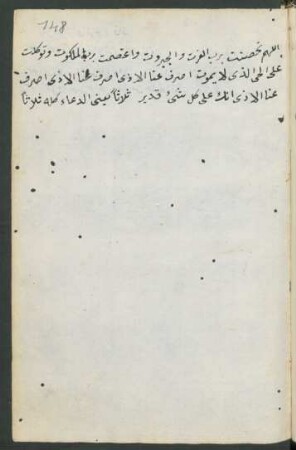 148
اللهم تحصنت برب العزت والجبروت واعتصمت برب الملكوت وتوكلت
على الحي الذي لا يموت اصرف عنا الاذى اصرف عنا الاذى اصرف
عنا الاذى انك على كل شئ قدير ثلاثا يعنى الدعاء كله ثلاثا